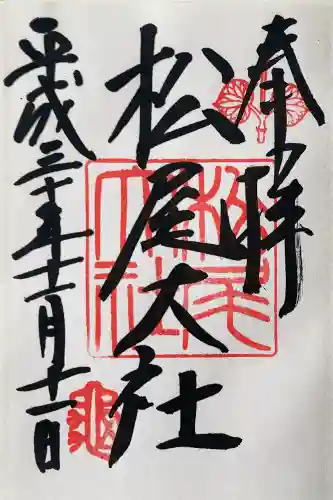 奉拝
松尾大社
平成三十年十一月十一日
松尾大社